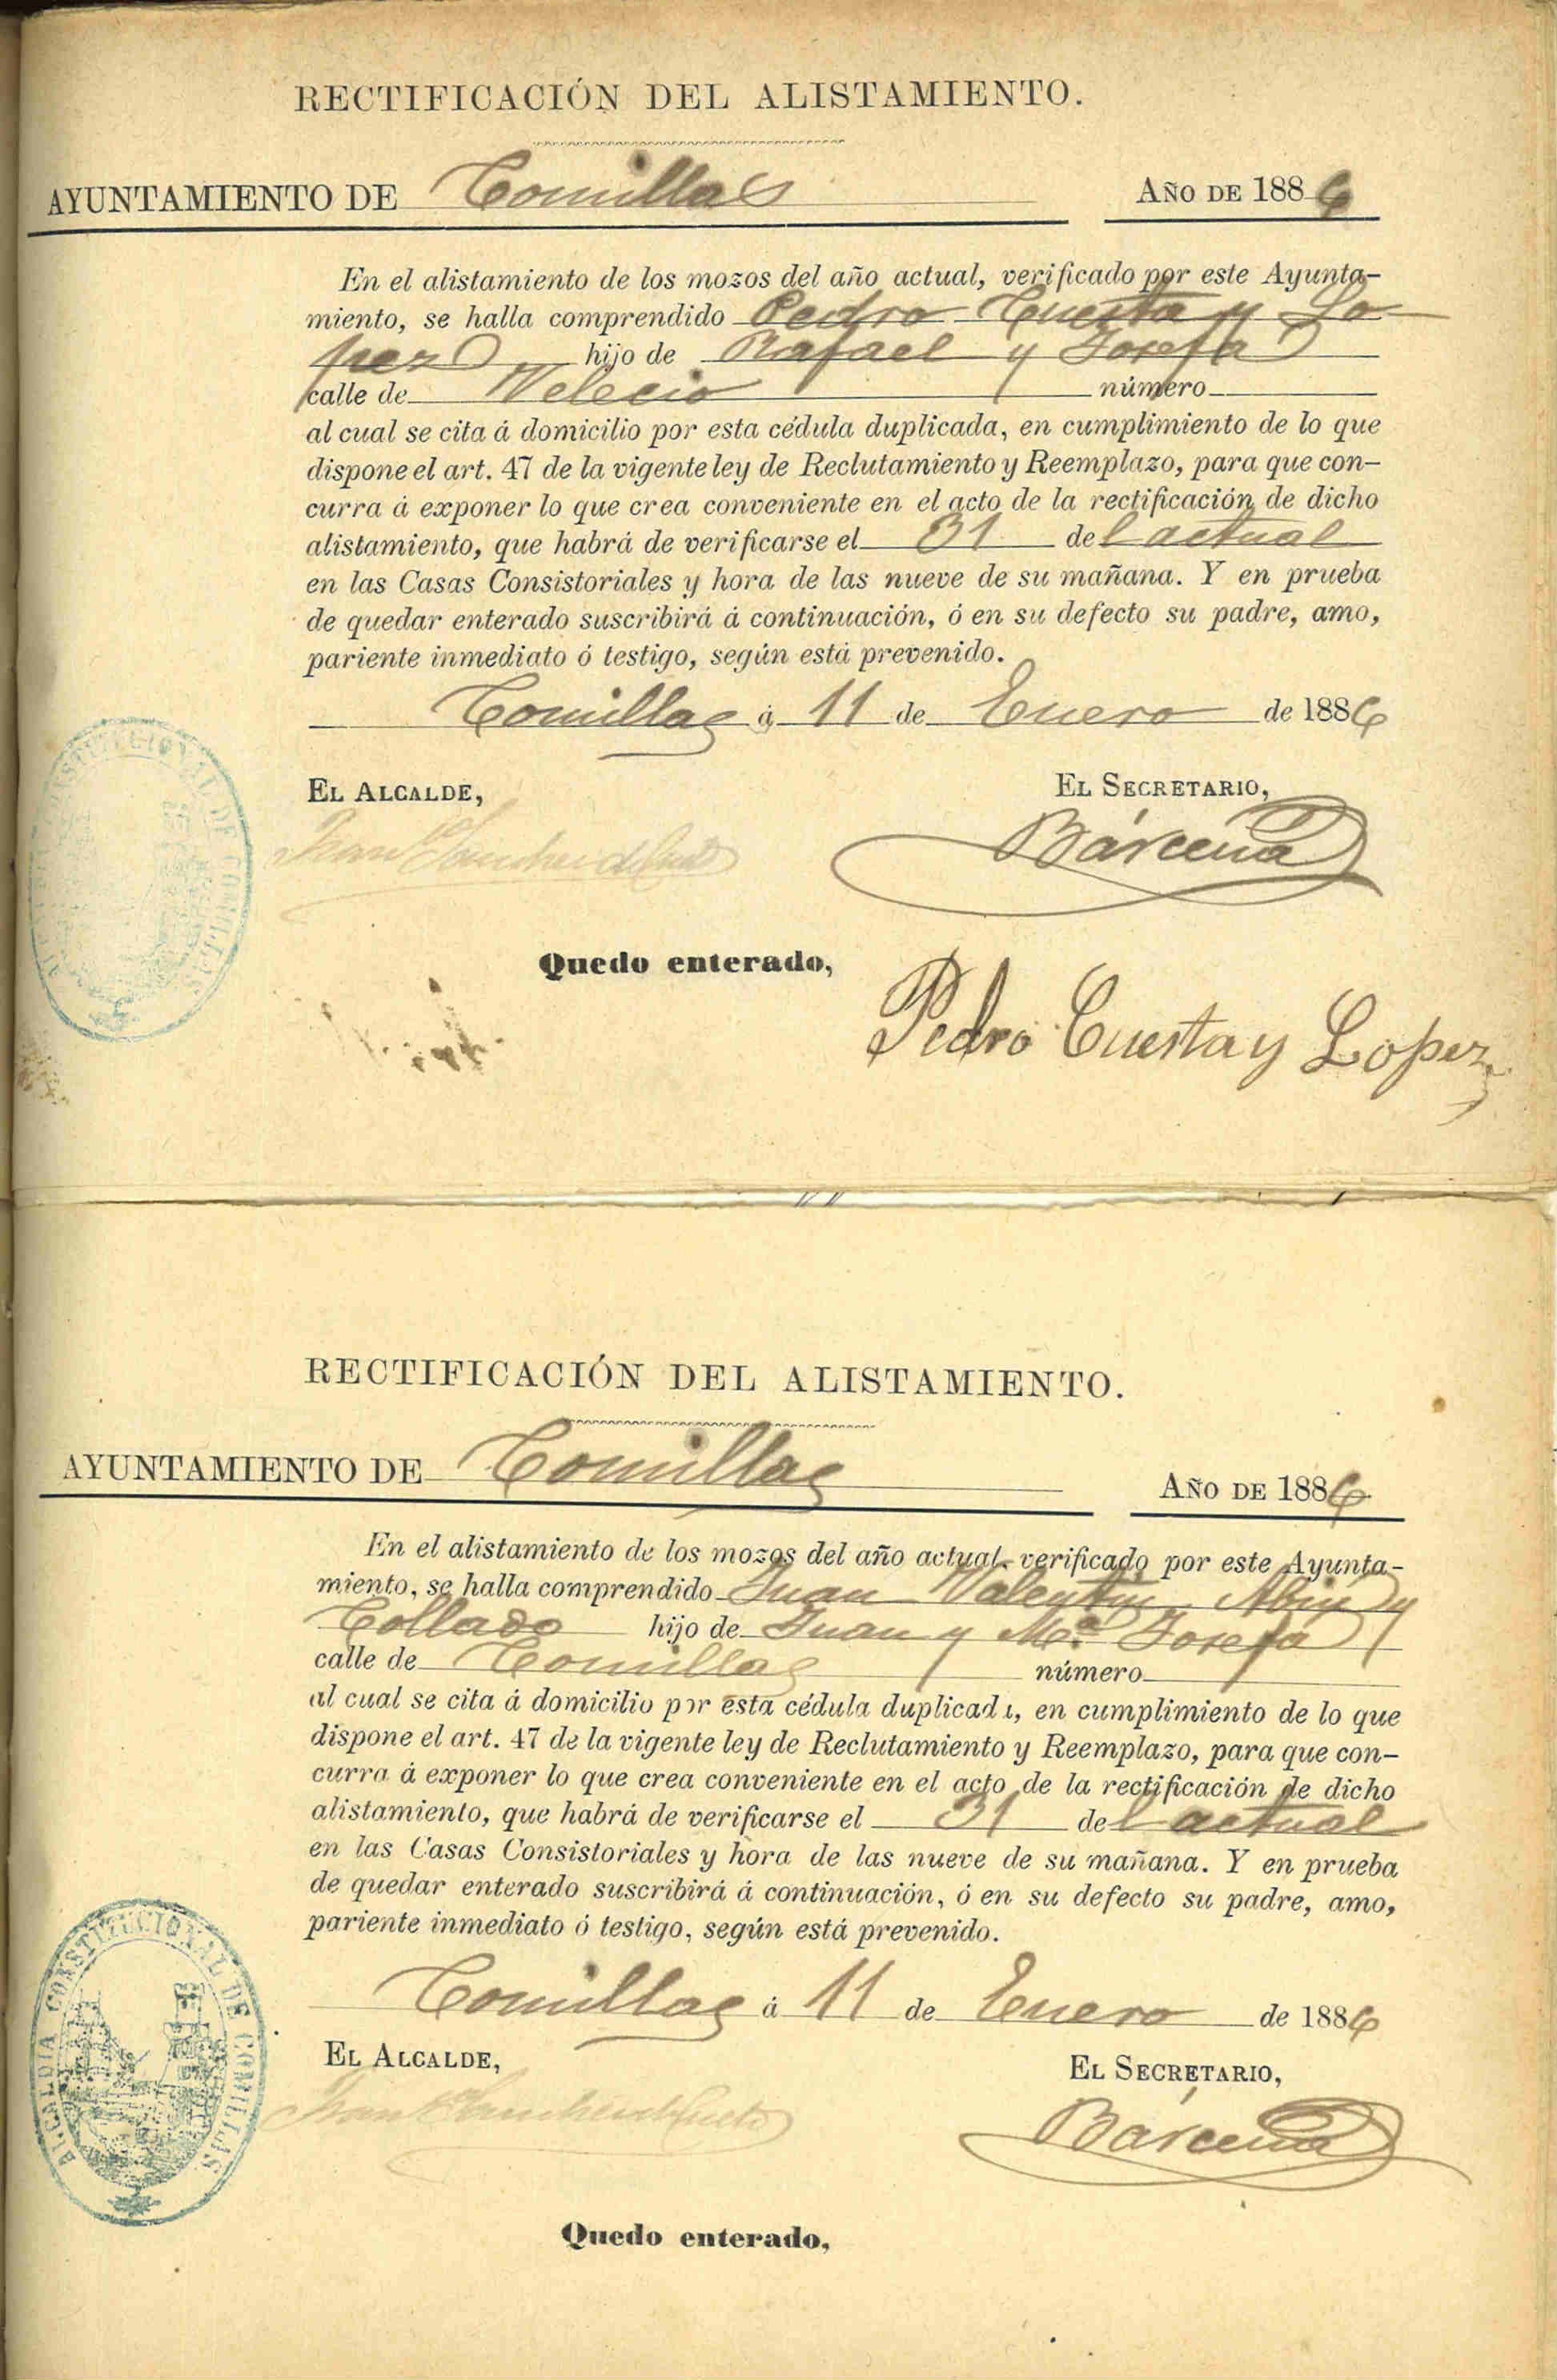 RECTIFICACIÓN DEL ALISTAMIENTO.
AYUNTAMIENTO DE Comillas AÑO DE 1886
En el alistamiento de los mozos del año actual, verificado por este Ayunta-
miento, se halla comprendido Pedro Cuesta y Lo-
pez hijo de Rafael y Josefa
calle de Velecio número
al cual se cita á domicilio por esta cédula duplicada, en cumplimiento de lo que
dispone el art. 47 de la vigente ley de Reclutamiento y Reemplazo, para que con-
curra á exponer lo que crea conveniente en el acto de la rectificación de dicho
alistamiento, que habrá de verificarse el 31 del actual
en las Casas Consistoriales y hora de las nueve de su mañana. Y en prueba
de quedar enterado suscribirá á continuación, ó en su defecto su padre, amo,
pariente inmediato ó testigo, según está prevenido.
Comillas á 11 de Enero de 1886
EL ALCALDE, EL SECRETARIO,
Juan Sanchez de Cueto Bárcena
Quedo enterado,
Pedro Cuesta y Lopez
RECTIFICACIÓN DEL ALISTAMIENTO.
AYUNTAMIENTO DE Comillas AÑO DE 1886
En el alistamiento de los mozos del año actual, verificado por este Ayunta-
miento, se halla comprendido Juan Valentin Abin y
Collado hijo de Juan y Mª Josefa
calle de Comillas número
al cual se cita á domicilio por esta cédula duplicada, en cumplimiento de lo que
dispone el art. 47 de la vigente ley de Reclutamiento y Reemplazo, para que con-
curra á exponer lo que crea conveniente en el acto de la rectificación de dicho
alistamiento, que habrá de verificarse el 31 del actual
en las Casas Consistoriales y hora de las nueve de su mañana. Y en prueba
de quedar enterado suscribirá á continuación, ó en su defecto su padre, amo,
pariente inmediato ó testigo, según está prevenido.
Comillas á 11 de Enero de 1886
ALCALDIA CONSTITUCIONAL DE COMILLAS
EL ALCALDE, EL SECRETARIO,
Juan Sanchez de Cueto Bárcena
Quedo enterado,